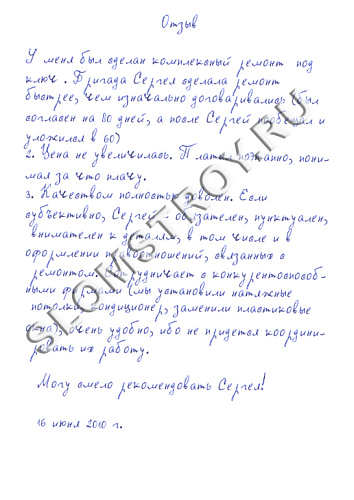 Отзыв
У меня был сделан комплексный ремонт под
ключ. Бригада Сергея сделала ремонт
быстрее, чем изначально договаривались (был
согласен на 80 дней, а после Сергей пообещал и
уложился в 60)
2. Цена не увеличилась. Платил поэтапно, пони-
мая за что плачу.
3. Качеством полностью доволен. Если
субъективно, Сергей - обязателен, пунктуален,
внимателен к деталям, в том числе и в
оформлении правоотношений, связанных с
ремонтом. Сотрудничает с конкурентоспособ-
ными фирмами (мы установили натяжные
потолки, кондиционер, заменили пластиковые
окна), очень удобно, ибо не придется координи-
ровать их работу.
Могу смело рекомендовать Сергея!
16 июня 2010 г.
SLOMSTROY.RU